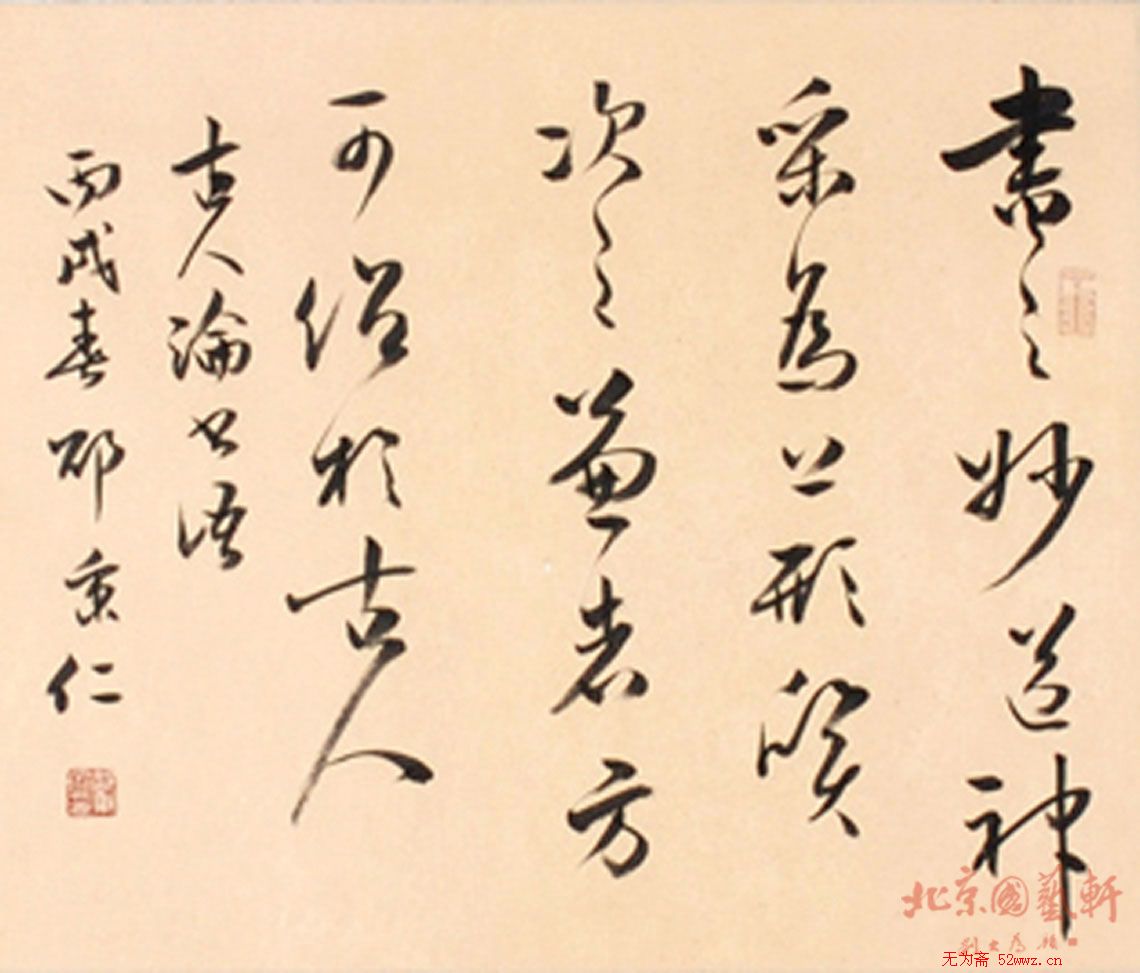 書之妙道神
采為上形質
次之兼者方
可紹於古人
古人論書語
丙戌春邵秉仁
北京國藝軒
无为斋 52wwz.cn